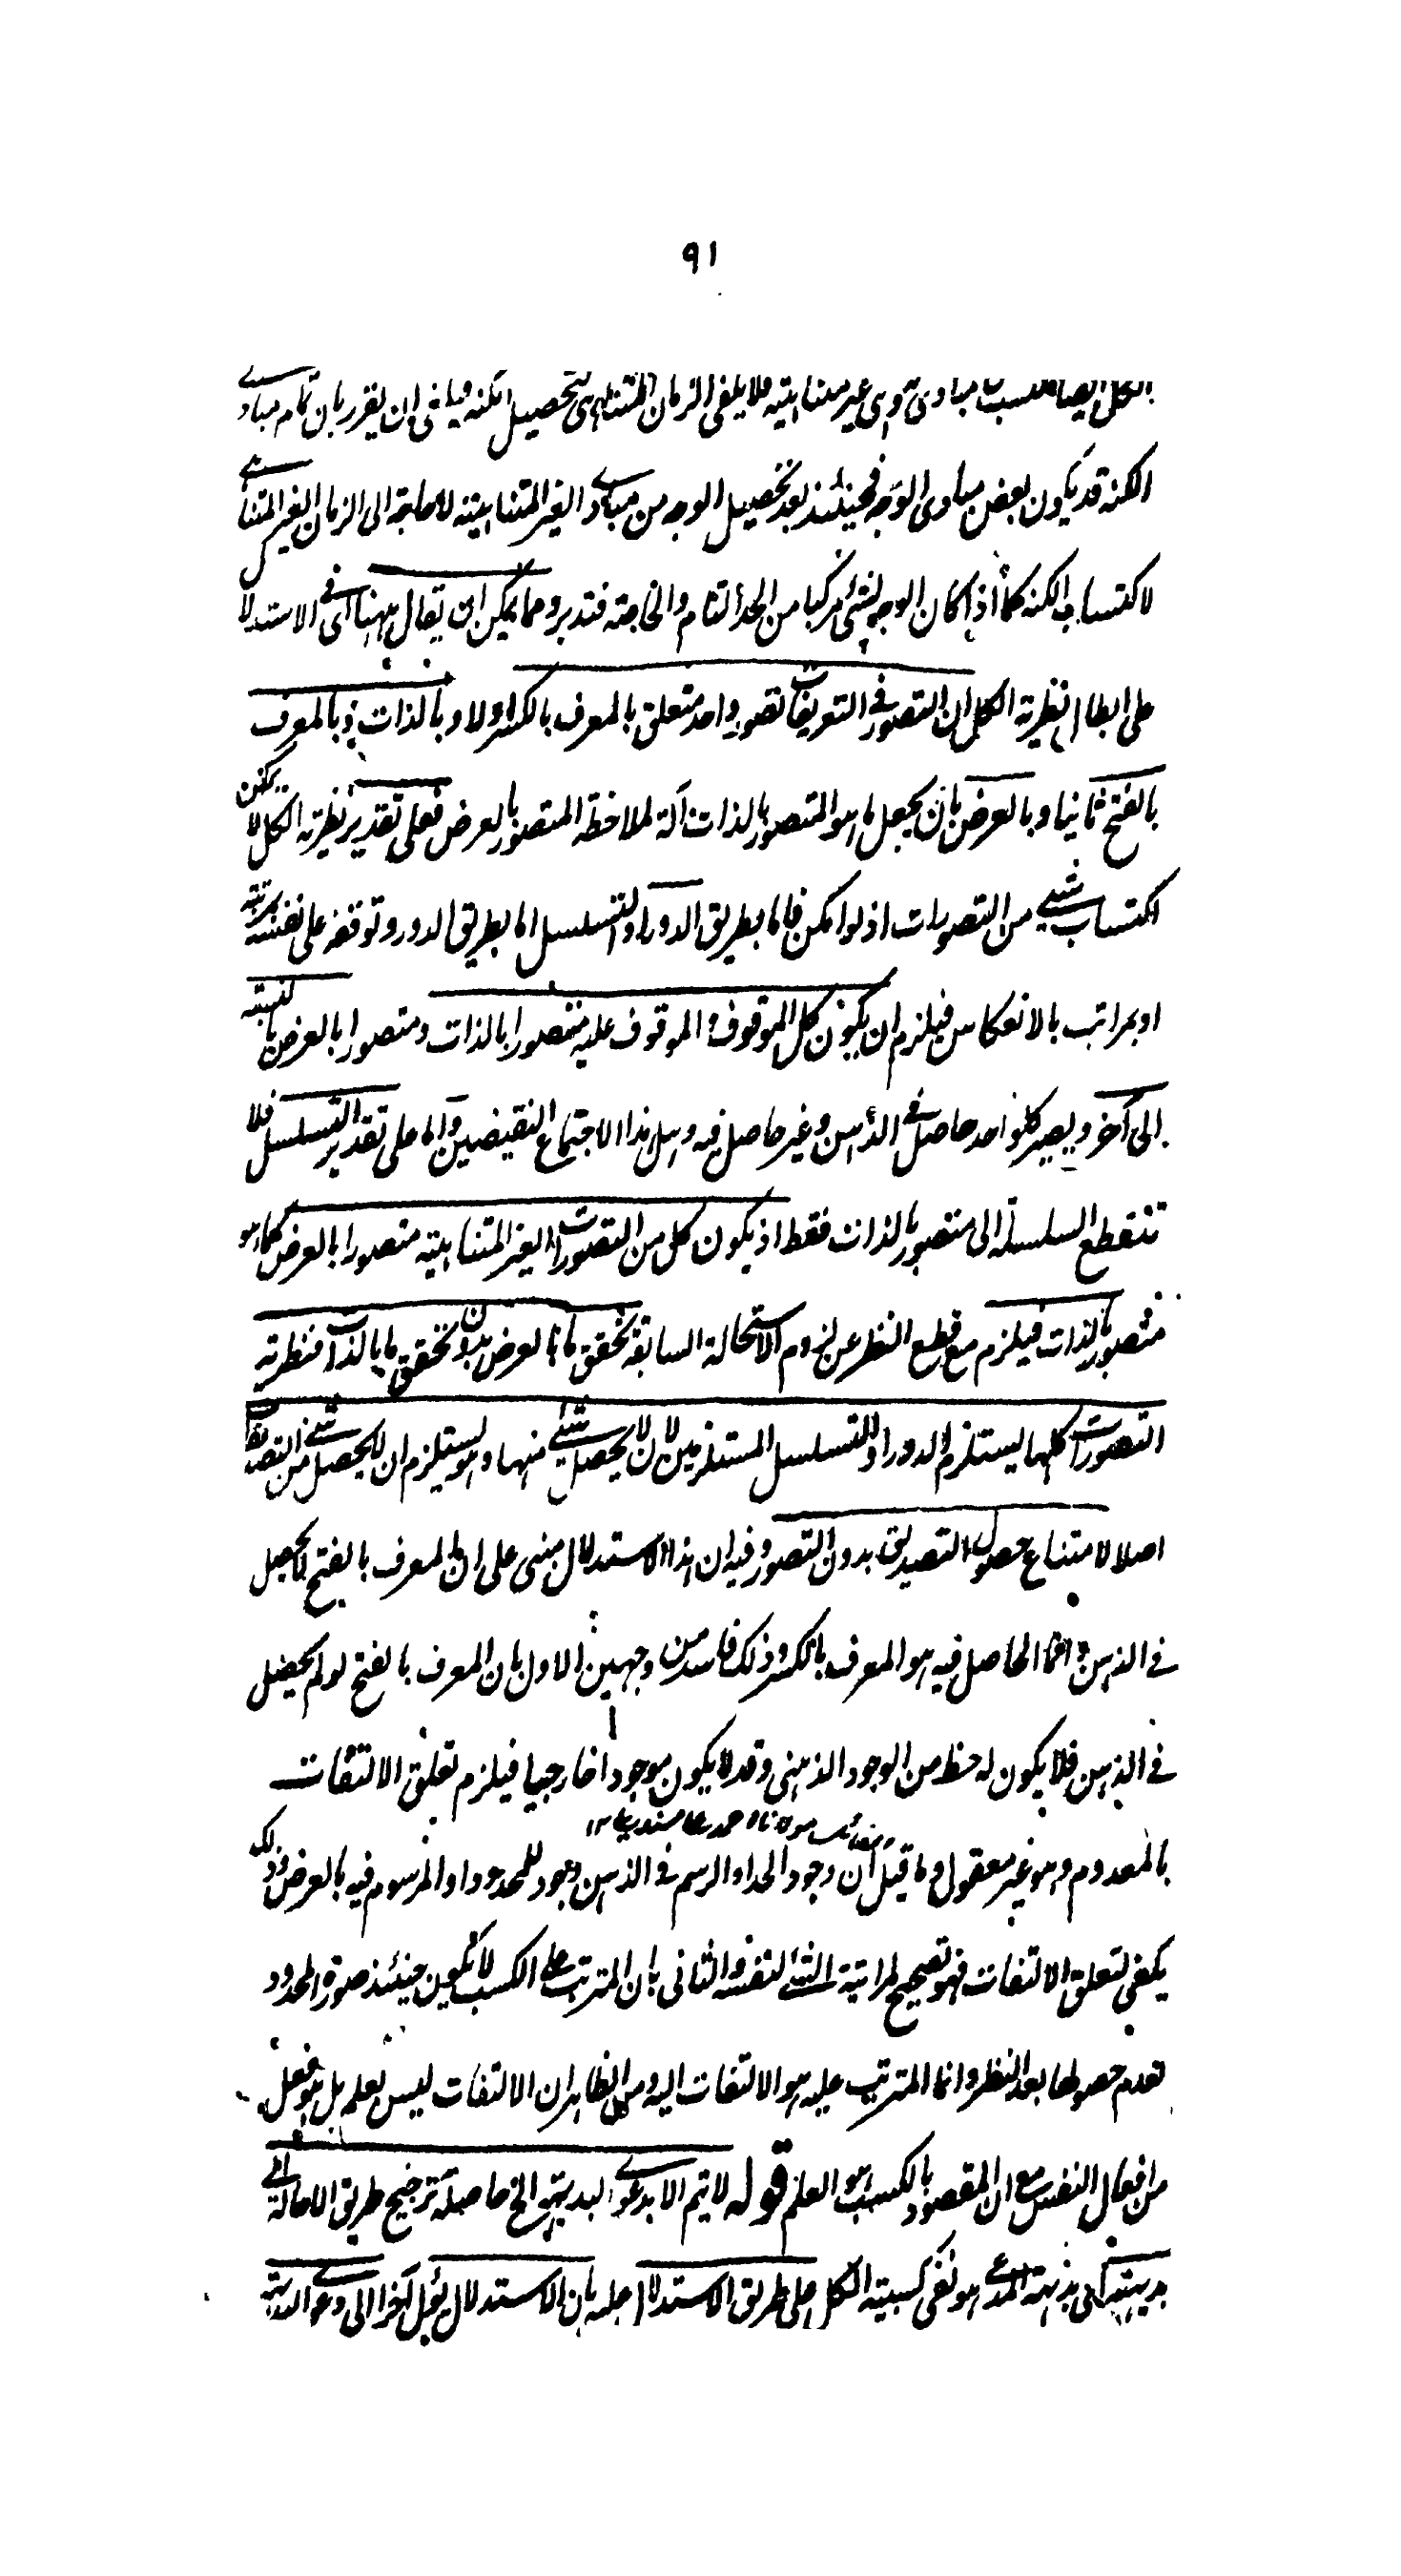 ٩١
الكل ايضا مبادى وهى غير متناهية فلا يكفى الزمان المتناهى لتحصيل الكنه فيما فى ان يقرر بان تمام مبادى
الكنه قد يكون بعض مبادى الوجه فحينئذ بعد تحصيل الوجه من مباديه الغير المتناهية لا حاجة الى الزمان الغير المتناهى
لاكتساب الكنه كما اذا كان الوجه لشئ مركبا من الحد التام والخاصة فتدبر ومما يمكن ان يقال ههنا اى فى الاستدلال
على ابطال نظرية الكل ان التصور فى التعريفات تصور واحد متعلق بالمعرف بالكسر اولا وبالذات وبالمعرف
بالفتح ثانيا وبالعرض بان يجعل ما هو المتصور بالذات آلة لملاحظة المتصور بالعرض فعلى تقدير نظرية الكل لا يمكن
اكتساب شئ من التصورات اذ لو امكن فاما بطريق الدور او التسلسل اما بطريق الدور وتوقفه على نفسه بمرتبة
او بمراتب بالانعكاس فيلزم ان يكون كل الموقوف والموقوف عليه متصورا بالذات ومتصورا بالعرض بالنسبة
الى آخر ويصير كل واحد حاصل فى الذهن وغير حاصل فيه وهل هذا الا اجتماع النقيضين واما على تقدير التسلسل فلا
تنقطع السلسلة الى متصور بالذات فقط اذ يكون كل من التصورات الغير المتناهية متصورا بالعرض كما هو
متصور بالذات فيلزم مع قطع النظر عن لزوم الاستحالة السابقة تحقق ما بالعرض بدون تحقق ما بالذات فنظرية
التصورات كلها يستلزم الدور او التسلسل المستلزمين لان لا يحصل شئ منها وهو يستلزم ان لا يحصل شئ من التصديقات
اصلا لامتناع حصول التصديق بدون التصور وفيه ان هذا الاستدلال مبنى على ان المعرف بالفتح لا يحصل
فى الذهن وانما الحاصل فيه هو المعرف بالكسر وذلك فاسد من وجهين الاول بان المعرف بالفتح لو لم يحصل
فى الذهن فلا يكون له حظ من الوجود الذهنى وقد لا يكون موجودا خارجيا فيلزم تعلق الالتفات
مولانا احمد على سنديلى ١٢
بالمعدوم وهو غير معقول وما قيل ان وجود الحد او الرسم فى الذهن وجود للمحدود او المرسوم فيه بالعرض وذلك
يكفى لتعلق الالتفات فهو تصحيح لمرآتية الشئ لنفسه والثانى بان المترتب على الكسب لا يكون حينئذ صورة المحدود
لعدم حصولها بعد النظر وانما المترتب عليه هو الالتفات اليه ومن الظاهر ان الالتفات ليس بعلم بل هو فعل
من افعال النفس مع ان المقصود بالكسب هو العلم قوله لا يتم الا بدعوى البديهة الخ حاصله ترجيح طريق الاحالة الى
بديهته اى بديهة المدعى هو نفى كسبية الكل على طريق الاستدلال عليه بان الاستدلال يؤل آخرا الى دعوى البديهة